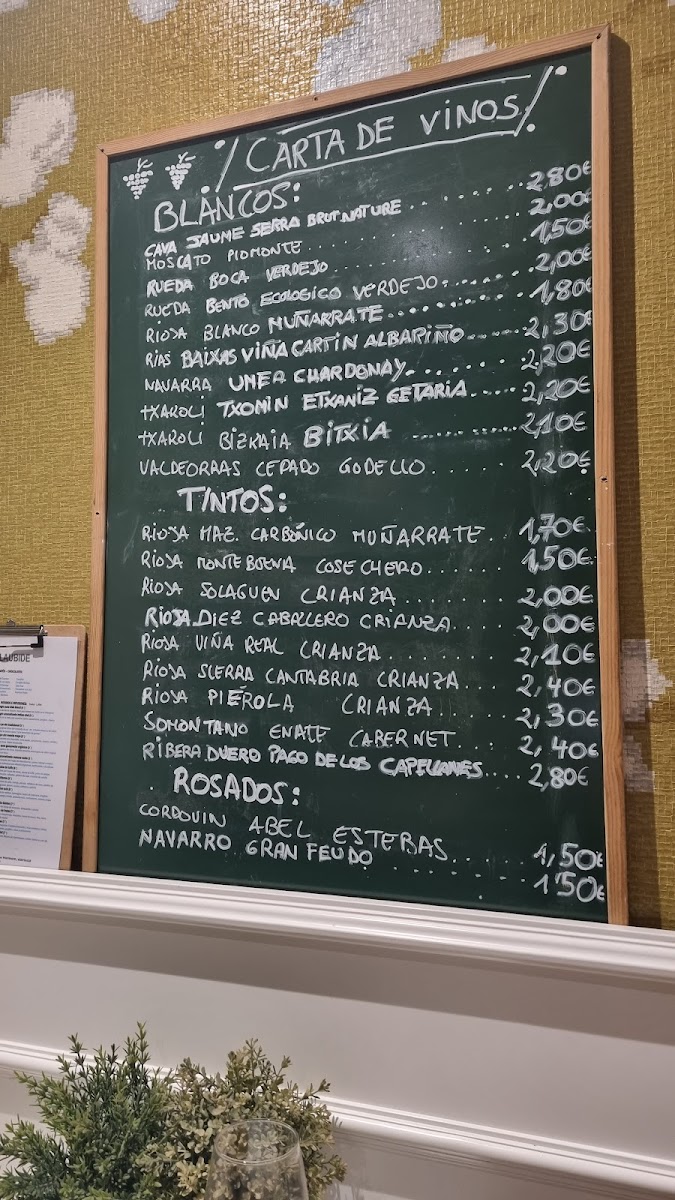 CARTA DE VINOS
BLANCOS:
CAVA JAUME SERRA BRUT NATURE ........ 2,80€
MOSCATO PIOMONTE ........ 2,00€
RUEDA BOCA VERDEJO ........ 1,50€
RUEDA BENTO ECOLOGICO VERDEJO ........ 2,00€
RIOJA BLANCO MUÑARRATE ........ 1,80€
RIAS BAIXAS VIÑA CARTIN ALBARIÑO ........ 2,30€
NAVARRA UNEA CHARDONAY ........ 2,20€
TXAKOLI TXOMIN ETXANIZ GETARIA ........ 2,20€
TXAKOLI BIZKAIA BITXIA ........ 2,10€
VALDEORRAS CEPADO GODELLO ........ 2,20€
TINTOS:
RIOJA MAZ. CARBÓNICO MUÑARRATE ........ 1,70€
RIOJA MONTEBUENA COSECHERO ........ 1,50€
RIOJA SOLAGUEN CRIANZA ........ 2,00€
RIOJA DIEZ CABALLERO CRIANZA ........ 2,00€
RIOJA VIÑA REAL CRIANZA ........ 2,10€
RIOJA SIERRA CANTABRIA CRIANZA ........ 2,40€
RIOJA PIÉROLA CRIANZA ........ 2,30€
SOMONTANO ENATE CABERNET ........ 2,40€
RIBERA DUERO PAGO DE LOS CAPELLANES ........ 2,80€
ROSADOS:
CORDOVIN ABEL ESTEBAS ........ 1,50€
NAVARRO GRAN FEUDO ........ 1'50€
LAUBIDE